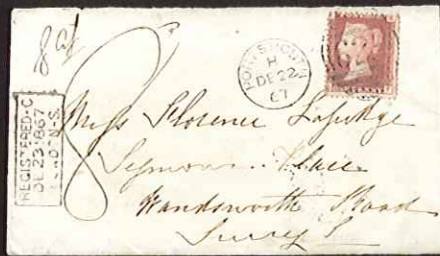 8d
8
PORTSMOUTH
H
DE 22
67
REGISTERED-C
DE 23 1867
LONDON.S.
Miss Florence
Seymour Place
Wandsworth Road
Surrey